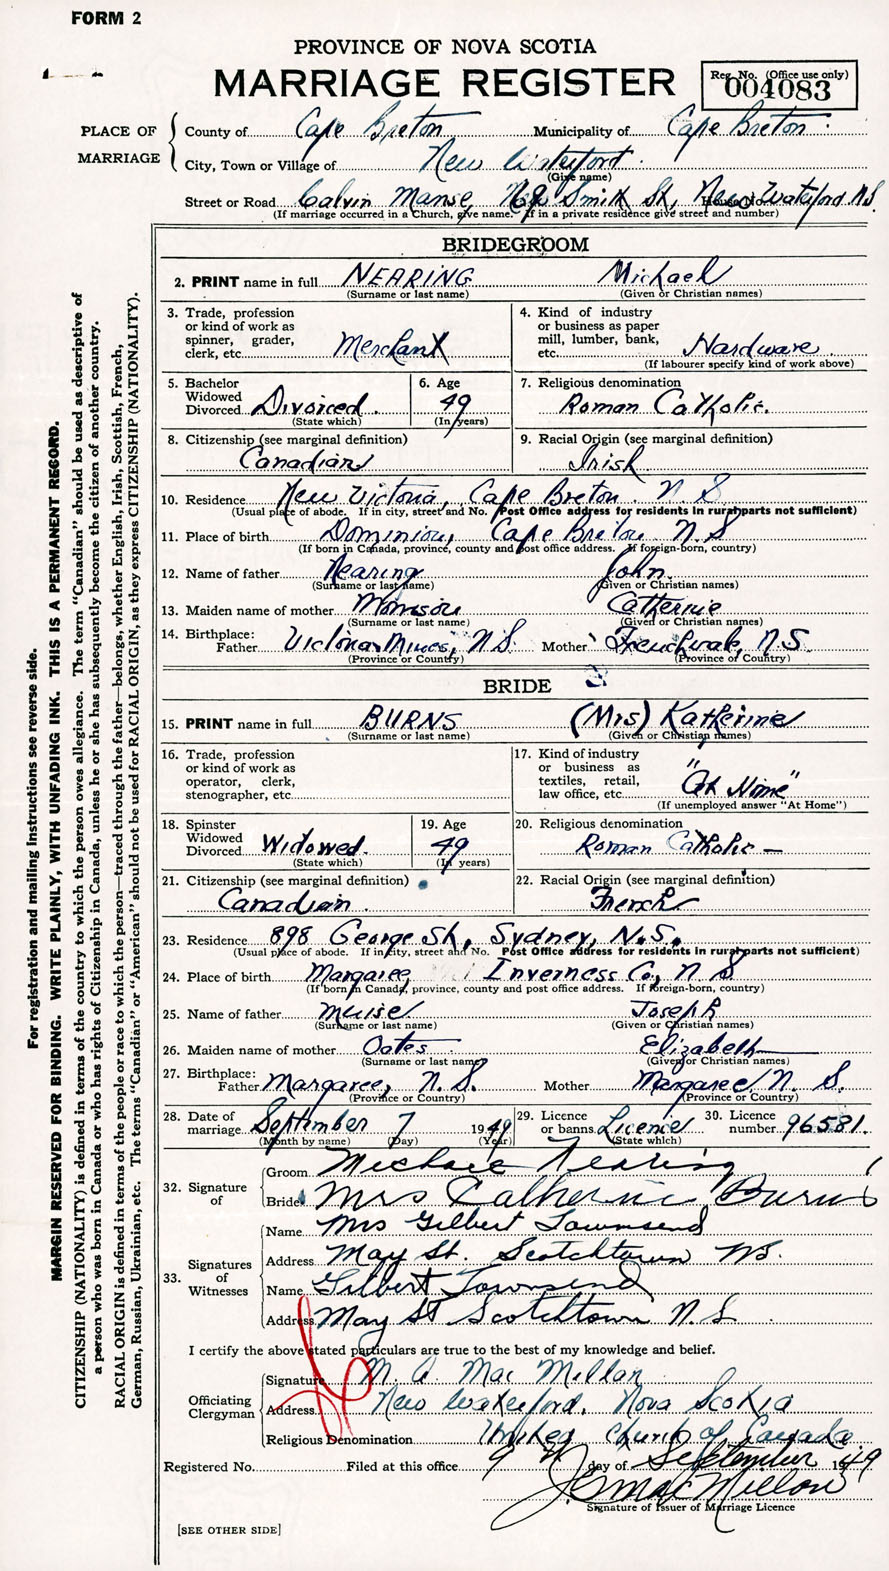 FORM 2
PROVINCE OF NOVA SCOTIA
MARRIAGE REGISTER
Reg. No. (Office use only)
004083
PLACE OF MARRIAGE
County of Cape Breton Municipality of Cape Breton
City, Town or Village of New Waterford
(Give name)
Street or Road Calvin Manse, Smith St, New Waterford N.S.
House No.
(If marriage occurred in a Church, give name. If in a private residence give street and number)
BRIDEGROOM
2. PRINT name in full NEARING Michael
(Surname or last name) (Given or Christian names)
3. Trade, profession
or kind of work as
spinner, grader,
clerk, etc. Merchant
4. Kind of industry
or business as paper
mill, lumber, bank,
etc. Hardware
(If labourer specify kind of work above)
5. Bachelor
Widowed
Divorced Divorced
(State which)
6. Age
49
(In years)
7. Religious denomination
Roman Catholic.
8. Citizenship (see marginal definition)
Canadian
9. Racial Origin (see marginal definition)
Irish
10. Residence New Victoria, Cape Breton N S
(Usual place of abode. If in city, street and No. Post Office address for residents in rural parts not sufficient)
11. Place of birth Dominion, Cape Breton N.S
(If born in Canada, province, county and post office address. If foreign-born, country)
12. Name of father Nearing John
(Surname or last name) (Given or Christian names)
13. Maiden name of mother Morrison Catherine
(Surname or last name) (Given or Christian names)
14. Birthplace:
Father Victoria Mines, N.S. Mother Frenchvale, N.S.
(Province or Country) (Province or Country)
BRIDE
15. PRINT name in full BURNS (Mrs) Katherine
(Surname or last name) (Given or Christian names)
16. Trade, profession
or kind of work as
operator, clerk,
stenographer, etc.
17. Kind of industry
or business as
textiles, retail,
law office, etc. "At Home"
(If unemployed answer "At Home")
18. Spinster
Widowed
Divorced Widowed.
(State which)
19. Age
49
(In years)
20. Religious denomination
Roman Catholic —
21. Citizenship (see marginal definition)
Canadian.
22. Racial Origin (see marginal definition)
French
23. Residence 898 George St, Sydney, N.S.
(Usual place of abode. If in city, street and No. Post Office address for residents in rural parts not sufficient)
24. Place of birth Margaree, Inverness Co., N S
(If born in Canada, province, county and post office address. If foreign-born, country)
25. Name of father Muise Joseph
(Surname or last name) (Given or Christian names)
26. Maiden name of mother Oates Elizabeth
(Surname or last name) (Given or Christian names)
27. Birthplace:
Father Margaree, N.S. Mother Margaree N. S.
(Province or Country) (Province or Country)
28. Date of
marriage September 7 1949
(Month by name) (Day) (Year)
29. Licence
or banns Licence
(State which)
30. Licence
number 96581.
32. Signature of
Groom Michael Nearing
Bride Mrs Catherine Burns
33. Signatures of Witnesses
Name Mrs Gilbert Townsend
Address May St. Scotchtown NS.
Name Gilbert Townsend
Address May St Scotchtown N.S
I certify the above stated particulars are true to the best of my knowledge and belief.
Officiating Clergyman
Signature M. A. MacMillan
Address New Waterford, Nova Scotia
Religious Denomination United Church of Canada
Registered No. Filed at this office 9 day of September 1949
MacMillan
Signature of Issuer of Marriage Licence
[SEE OTHER SIDE]
For registration and mailing instructions see reverse side.
MARGIN RESERVED FOR BINDING. WRITE PLAINLY, WITH UNFADING INK. THIS IS A PERMANENT RECORD.
CITIZENSHIP (NATIONALITY) is defined in terms of the country to which the person owes allegiance. The term "Canadian" should be used as descriptive of
a person who was born in Canada or who has rights of Citizenship in Canada, unless he or she has subsequently become the citizen of another country.
RACIAL ORIGIN is defined in terms of the people or race to which the person—traced through the father—belongs, whether English, Irish, Scottish, French,
German, Russian, Ukrainian, etc. The terms "Canadian" or "American" should not be used for RACIAL ORIGIN, as they express CITIZENSHIP (NATIONALITY).